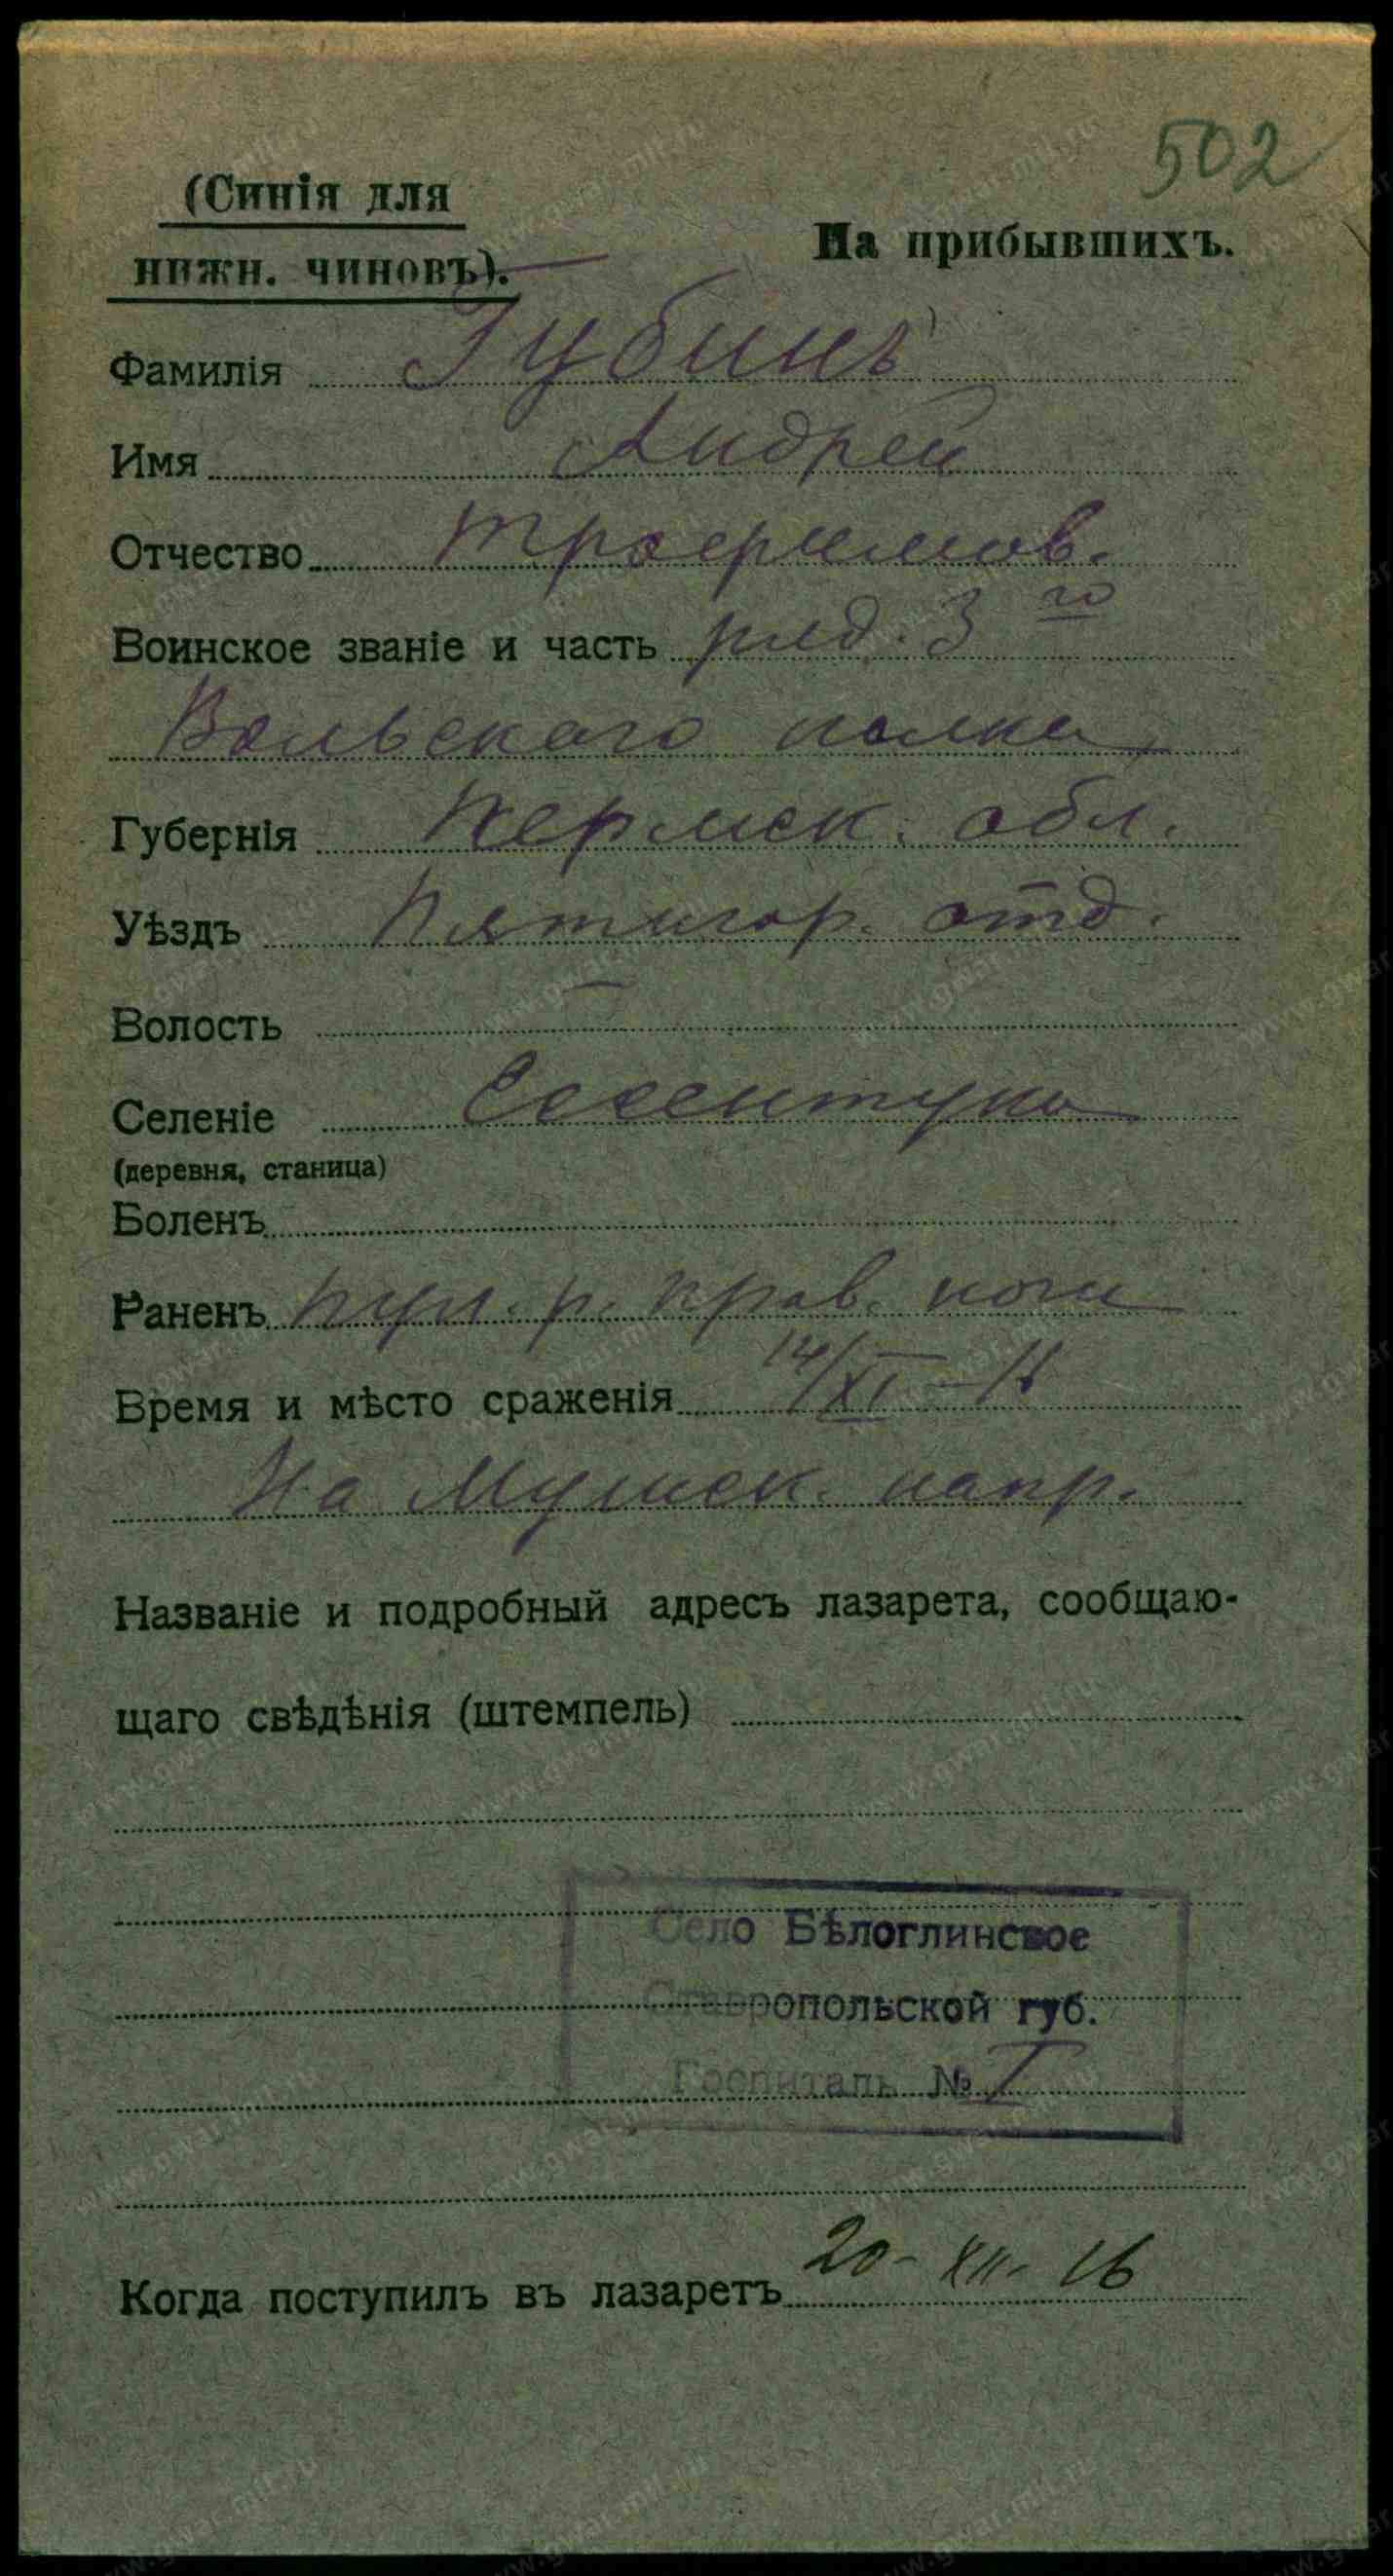 502
(Синія для
нижн. чиновъ).
На прибывшихъ.
Фамилія Губинъ
Имя Андрей
Отчество Трофимов.
Воинское званіе и часть ряд. 3 го
Вольскаго полка
Губернія обл.
Уѣздъ Пятигор. отд.
Волость —
Селеніе Ессентуки
(деревня, станица)
Боленъ
Раненъ пул. р. прав. ноги
Время и мѣсто сраженія 14/XI —
На Мушск. напр.
Названіе и подробный адресъ лазарета, сообщаю-
щаго свѣдѣнія (штемпель)
Село Бѣлоглинское
Ставропольской губ.
Госпиталь № I
Когда поступилъ въ лазаретъ 20- XII- 16
www.gwar.mil.ru